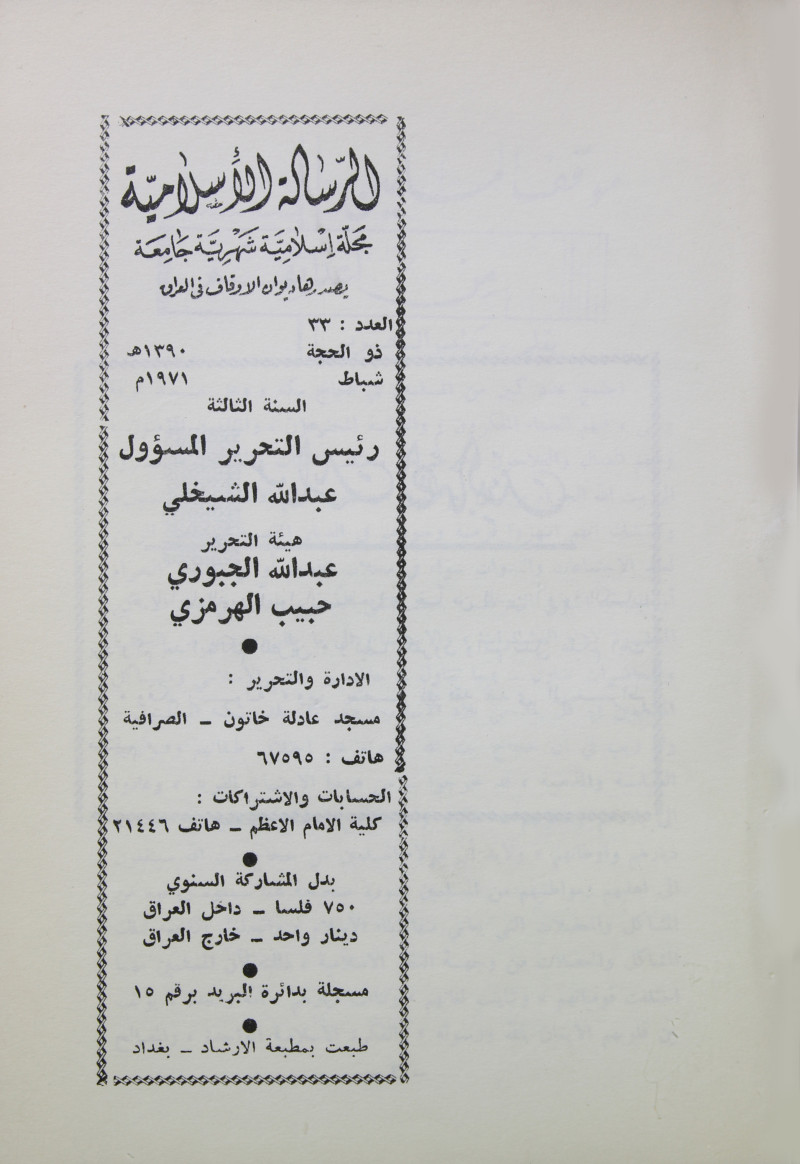 الرّسالة الأسلاميّة
مَجَلّة إسْلاميَّة شَهْريَّة جَامِعَة
يصدرها ديوان الاوقاف في العراق
العدد : ٣٣
ذو الحجة ١٣٩٠هـ
شباط ١٩٧١م
السنة الثالثة
رئيس التحرير المسؤول
عبدالله الشيخلي
هيئة التحرير
عبدالله الجبوري
حبيب الهرمزي
الادارة والتحرير :
مسجد عادلة خاتون ــ الصرافية
هاتف : ٦٧٥٩٥
الحسابات والاشتراكات :
كلية الامام الاعظم ــ هاتف ٢١٤٤٦
بدل المشاركة السنوي
٧٥٠ فلسا ــ داخل العراق
دينار واحد ــ خارج العراق
مسجلة بدائرة البريد برقم ١٥
طبعت بمطبعة الارشاد ــ بغداد